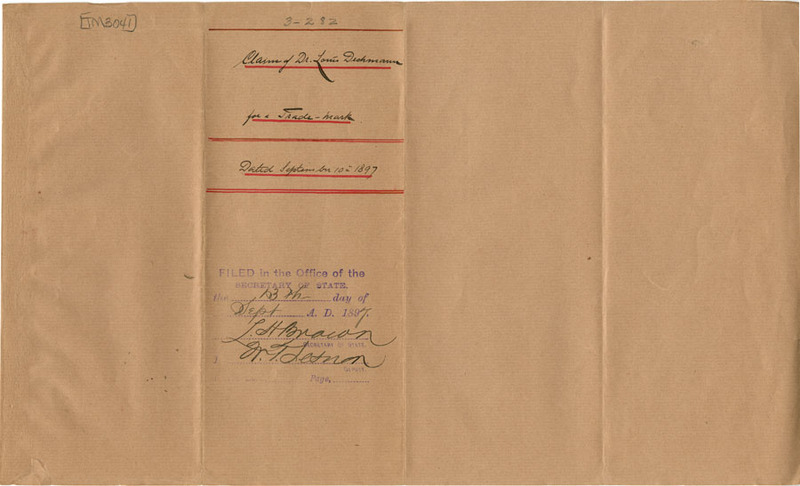 TM3041
3-282
Claim of Dr. Louis Dechmann
for a Trade-mark
Dated September 10th 1897
FILED in the Office of the
SECRETARY OF STATE,
the 13th day of
Sept A. D. 1897.
L. H. Brown
SECRETARY OF STATE.
W. T.
DEPUTY.
Page,